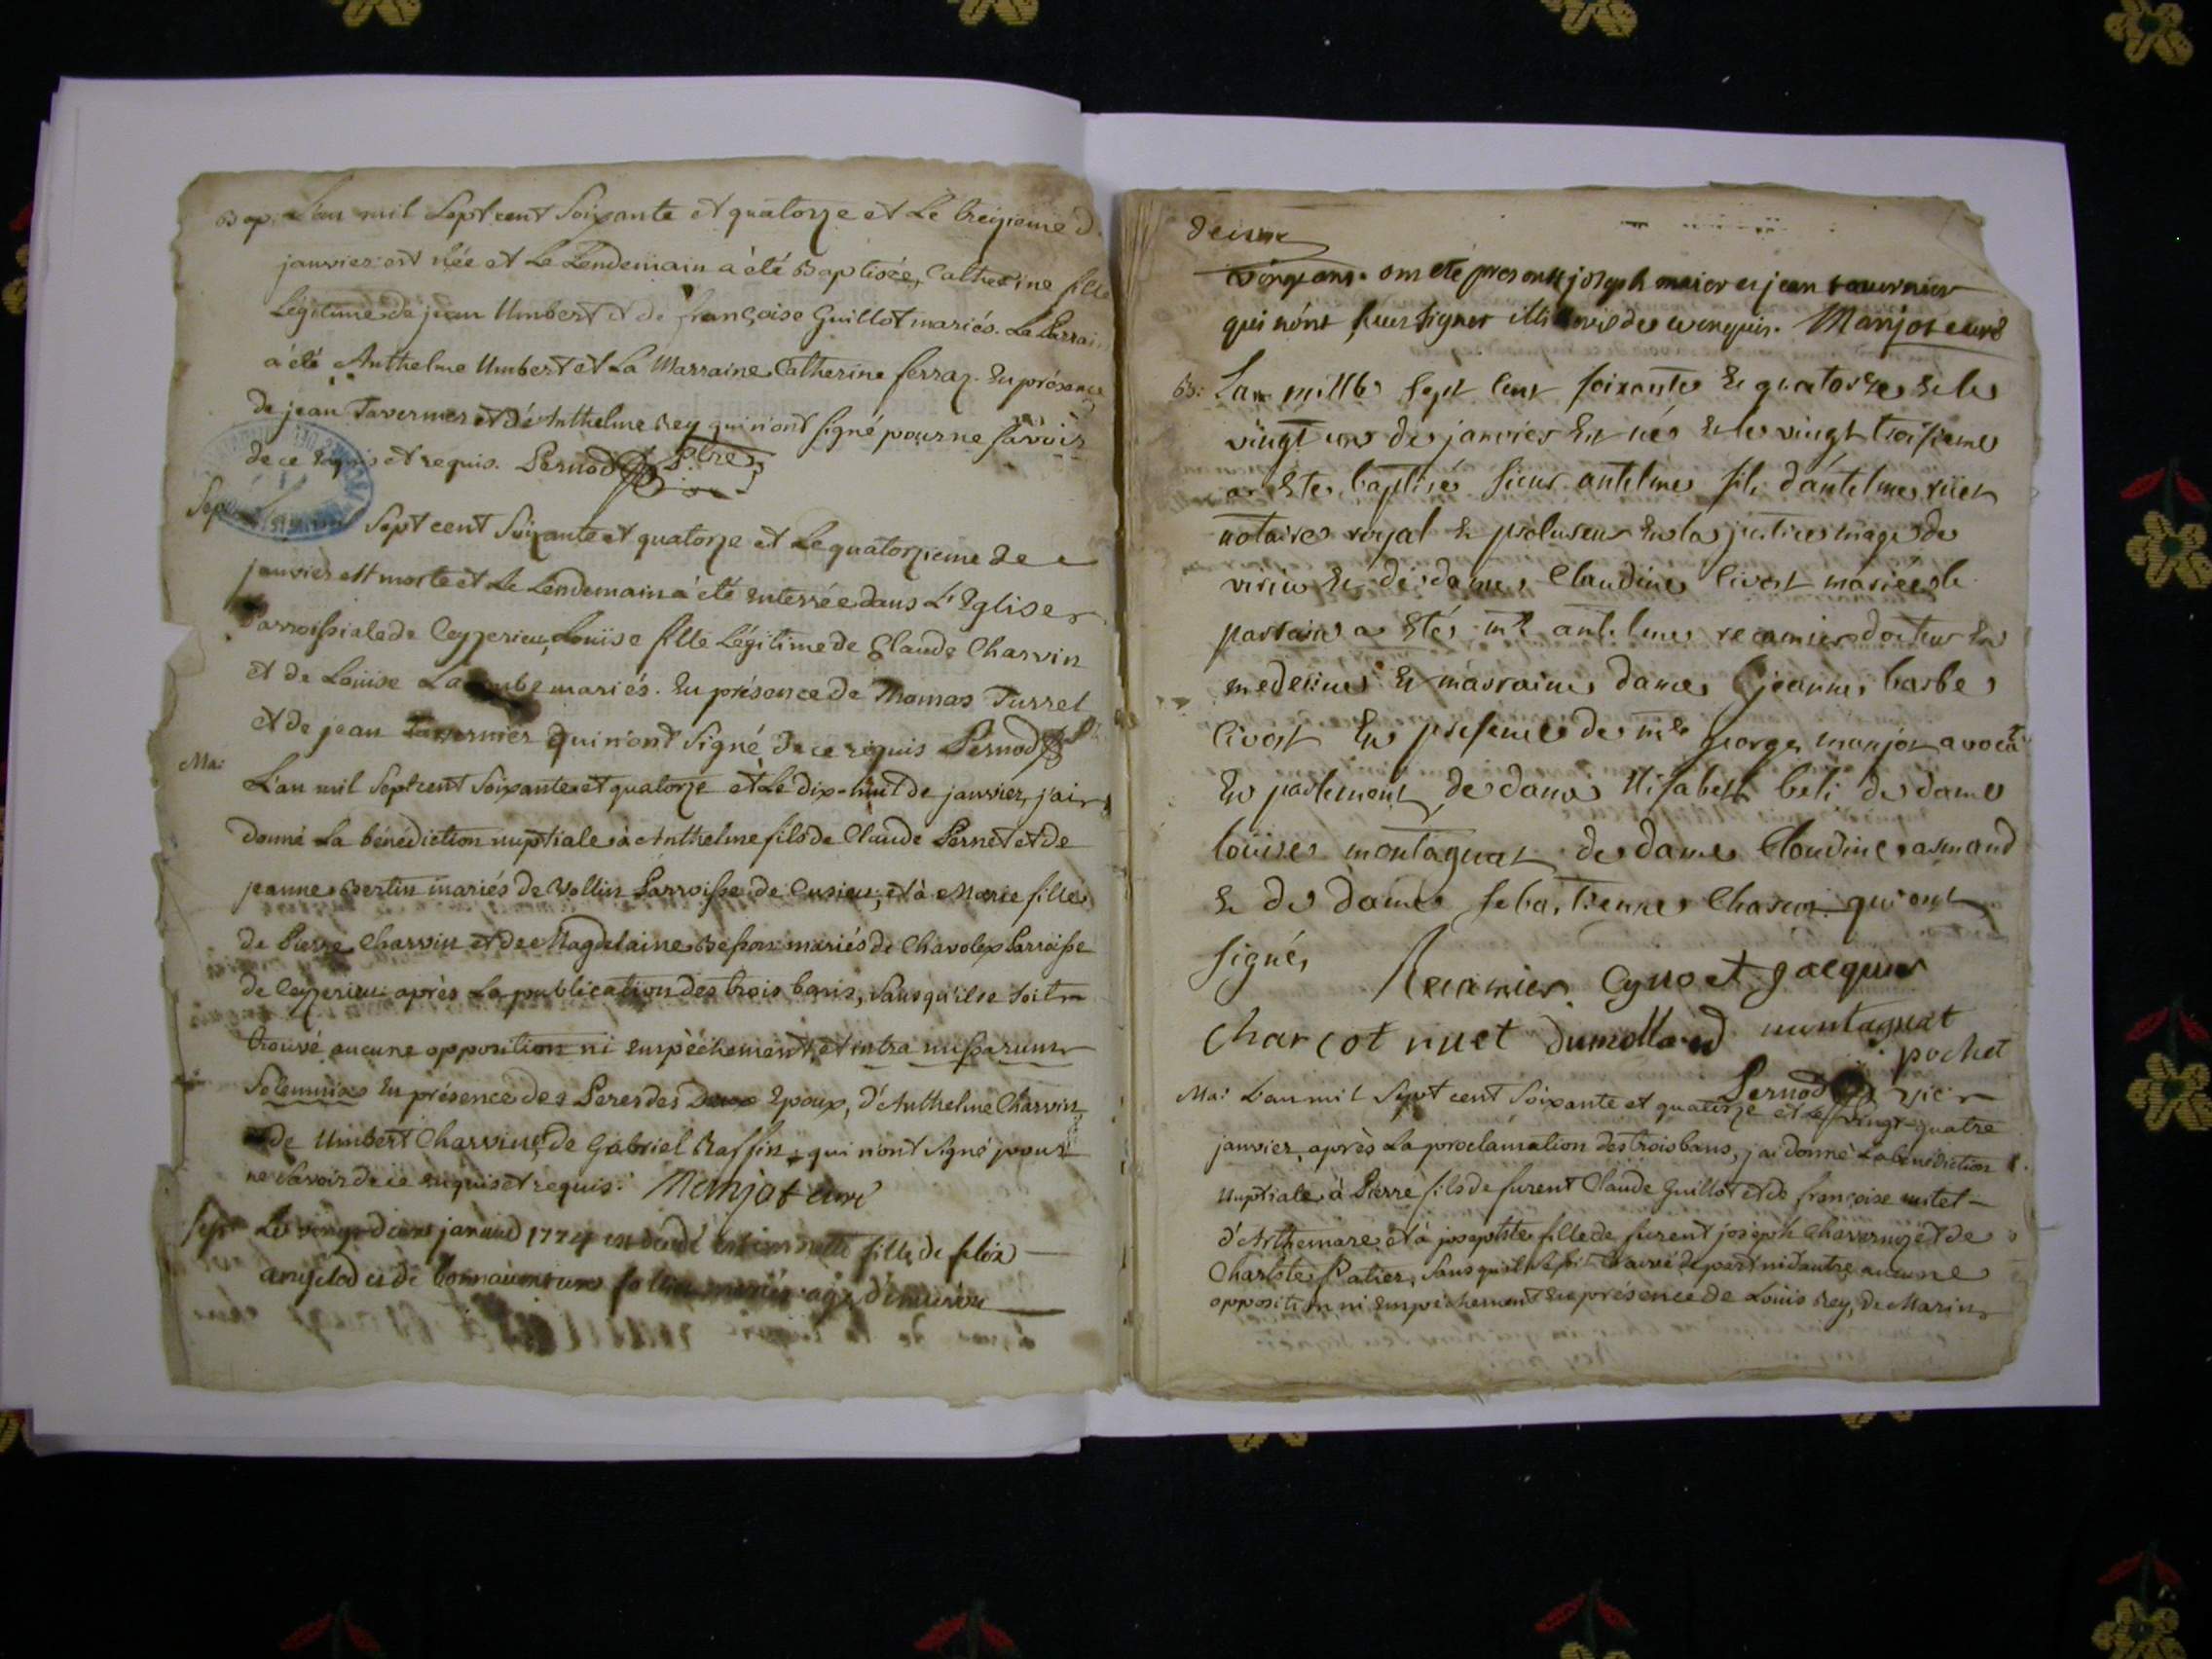 Bap. L'an mil Sept cent Soixante et quatorze et Le treizieme d
janvier est née et Le Lendemain a été Baptisée, Catherine fille
Légitime de jean Umbert et de françoise Guillot mariés. Le Parrain
a été Anthelme Umbert et La Marraine Catherine ferraz. En présence
de jean Tavernier et d'Anthelme Rey qui n'ont signé pour ne savoir
de ce enquis et requis. Pernod Ptre
Sept cent Soixante et quatorze et Le quatorzieme de
janvier est morte et Le Lendemain a été enterrée dans L'Eglise
Parroissiale de Ceyzerieu, Louise fille Légitime de Claude Charvin
et de Louise mariés. En présence de Thomas Turrel
et de jean Tavernier qui n'ont Signé de ce requis Pernod
Ma: L'an mil Sept cent Soixante et quatorze et Le dix-huit de janvier, j'ai
donné La bénédiction nuptiale à Anthelme fils de Claude Pernet et de
jeanne Bertin mariés de Vollin Parroisse de Cusieu, et à Marie fille
de Pierre Charvin et de Magdelaine Besson mariés de Chavolex Parroisse
de Ceyzerieu après La publication des trois bans, sans qu'il se soit
trouvé aucune opposition ni empêchement, et intra missarum
Solemnia en présence des Peres des Deux Epoux, d'Anthelme Charvin
de Umbert Charvin, de Gabriel Raffin, qui n'ont signé pour
ne savoir de ce enquis et requis. Manjot curé
Sept Le vingt deux janvier 1774 est fille de felix
mariés
deux
vingt ans. ont été presents joseph et jean tavernier
qui n'ont sceu signer enquis. Manjot curé
B: Lan mille sept cent soixante et quatorze et le
vingt un de janvier est né et le vingt troisieme
a ete baptisé sieur antelme fils d'antelme ruet
notaire royal et procureur en la justice mage de
virieu et de dame Claudine Civot mariés le
parrain a été mr antelme recamier docteur en
medecine et marraine dame jeanne barbe
Civot En presence de me george manjot avocat
En parlement de dame Elisabeth beli de dame
louise montagnat de dame Claudine armand
et de dame sebastienne qui ont
signés Recamier Cyvoct jacques
Charcot ruet Dumolland montagnat
pochet
Pernod vic
Ma: L'an mil Sept cent Soixante et quatorze et Le vingt-quatre
janvier, après La proclamation des trois bans, j'ai donné La bénédiction
Nuptiale à Pierre fils de furent Claude Guillot et de françoise mitel
d'Arthemare, et à josephte fille de furent joseph et de
Charlote Patier, sans qu'il se soit trouvé de part ni d'autre aucune
opposition ni empêchement En présence de Louis Rey, de Marin